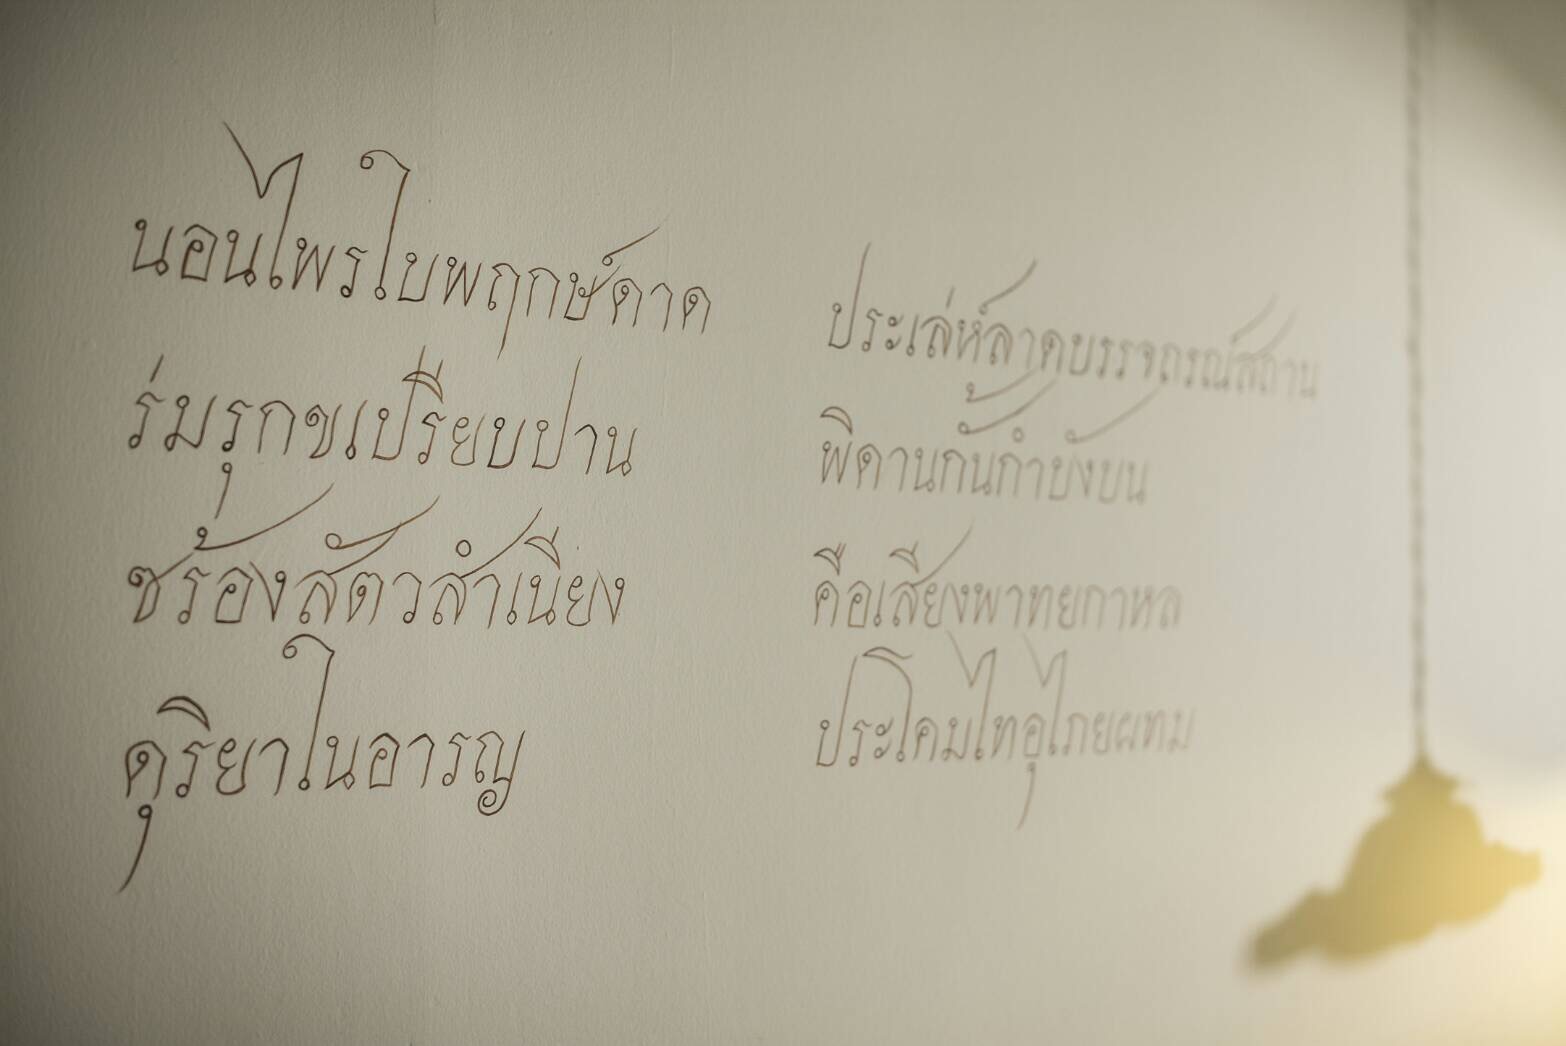 นอนไพรใบพฤกษ์ดาด ประเล่ห์ลาดบรรจถรณ์สถาน
ร่มรุกขเปรียบปาน พิดานกั้นกำบังบน
ซร้องสัตวสำเนียง คือเสียงพาทยกาหล
ดุริยาในอารญ ประโคมไทอุไภยผทม